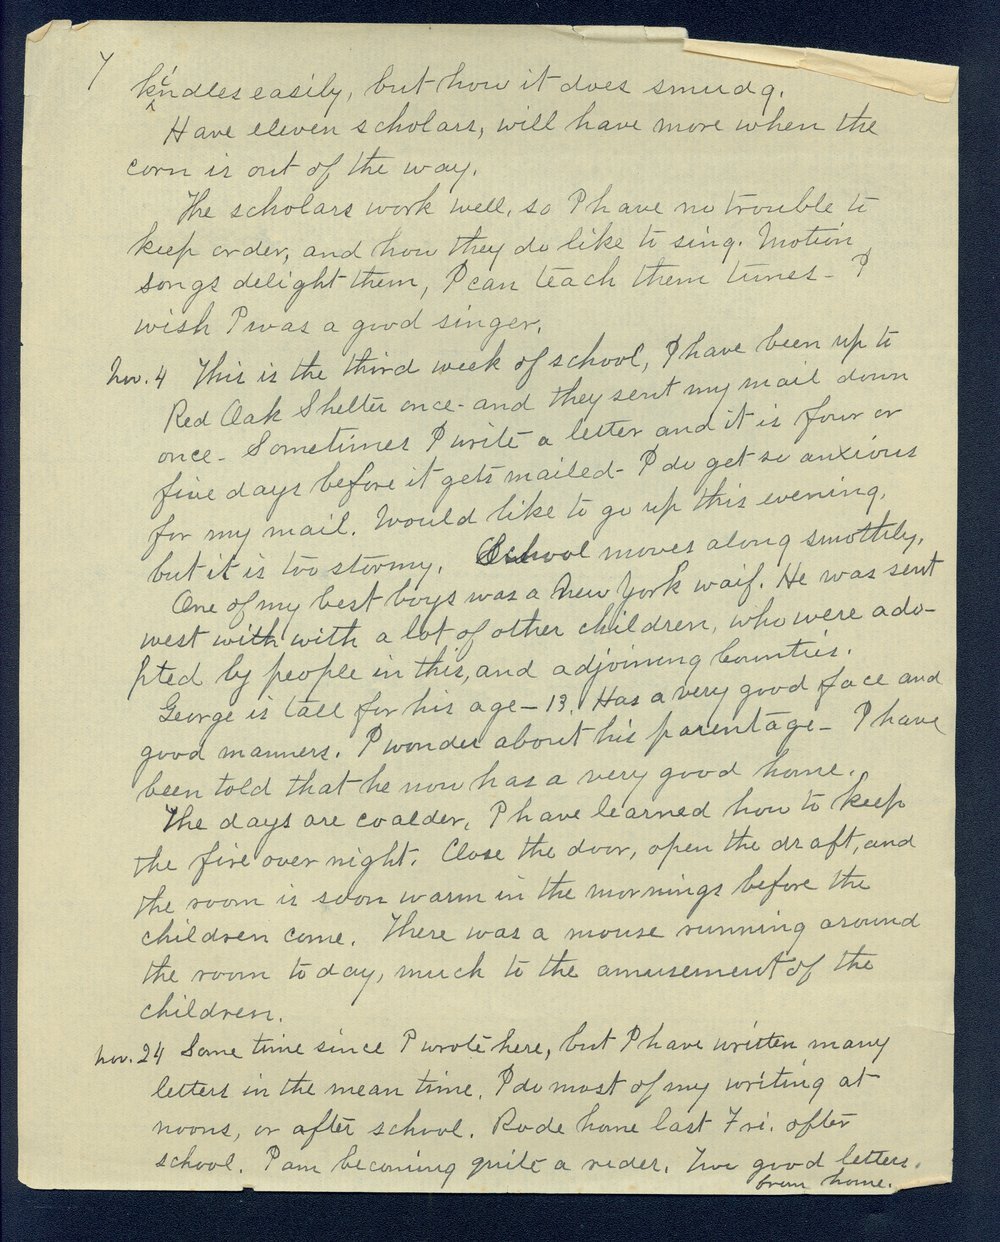 7 kindles easily, but how it does smudg.
Have eleven scholars, will have more when the
corn is out of the way.
The scholars work well, so I have no trouble to
keep order, and how they do like to sing. Motion
songs delight them, I can teach them tunes - I
wish I was a good singer.
Nov. 4 This is the third week of school, I have been up to
Red Oak Shelter once - and they sent my mail down
once - Sometimes I write a letter and it is four or
five days before it gets mailed - I do get so anxious
for my mail. Would like to go up this evening,
but it is too stormy. School moves along smothly.
One of my best boys was a New York waif. He was sent
west with with a lot of other children, who were ado-
pted by people in this, and adjoining Counties.
George is tall for his age - 13. Has a very good face and
good manners. I wonder about his parentage - I have
been told that he now has a very good home.
The days are coalder, I have learned how to keep
the fire over night. Close the door, open the draft, and
the room is soon warm in the mornings before the
children come. There was a mouse running around
the room today, much to the amusement of the
children.
Nov. 24 Some time since I wrote here, but I have written many
letters in the mean time. I do most of my writing at
noons, or after school. Rode home last Fri. after
school. I am becoming quite a rider. Two good letters
from home.